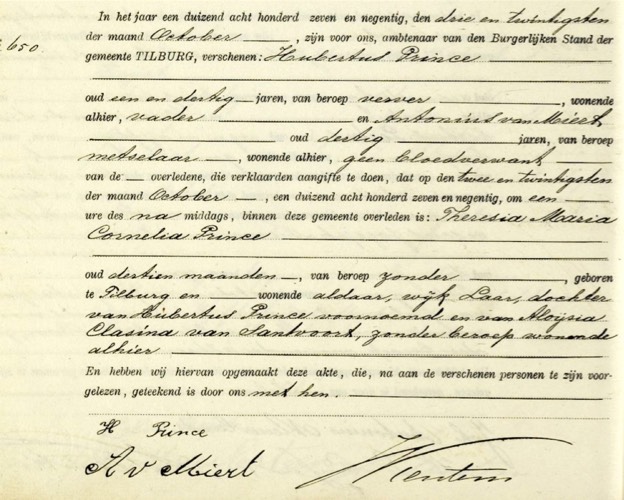 In het jaar een duizend acht honderd zeven en negentig, den drie en twintigsten
650
der maand October, zijn voor ons, ambtenaar van den Burgerlijken Stand der
gemeente TILBURG, verschenen: Hubertus Prince
oud een en dertig jaren, van beroep verver, wonende
alhier, vader en Antonius van Miert,
oud dertig jaren, van beroep
metselaar, wonende alhier, geen bloedverwant
van de overledene, die verklaarden aangifte te doen, dat op den twee en twintigsten
der maand October, een duizend acht honderd zeven en negentig, om een
ure des na middags, binnen deze gemeente overleden is: Theresia Maria
Cornelia Prince
oud dertien maanden, van beroep zonder, geboren
te Tilburg en wonende aldaar, wijk Laar, dochter
van Hubertus Prince voornoemd en van Aloÿsia
Clasina van Santvoort, zonder beroep wonende
alhier
En hebben wij hiervan opgemaakt deze akte, die, na aan de verschenen personen te zijn voor-
gelezen, geteekend is door ons met hen.
H Prince
A v Miert